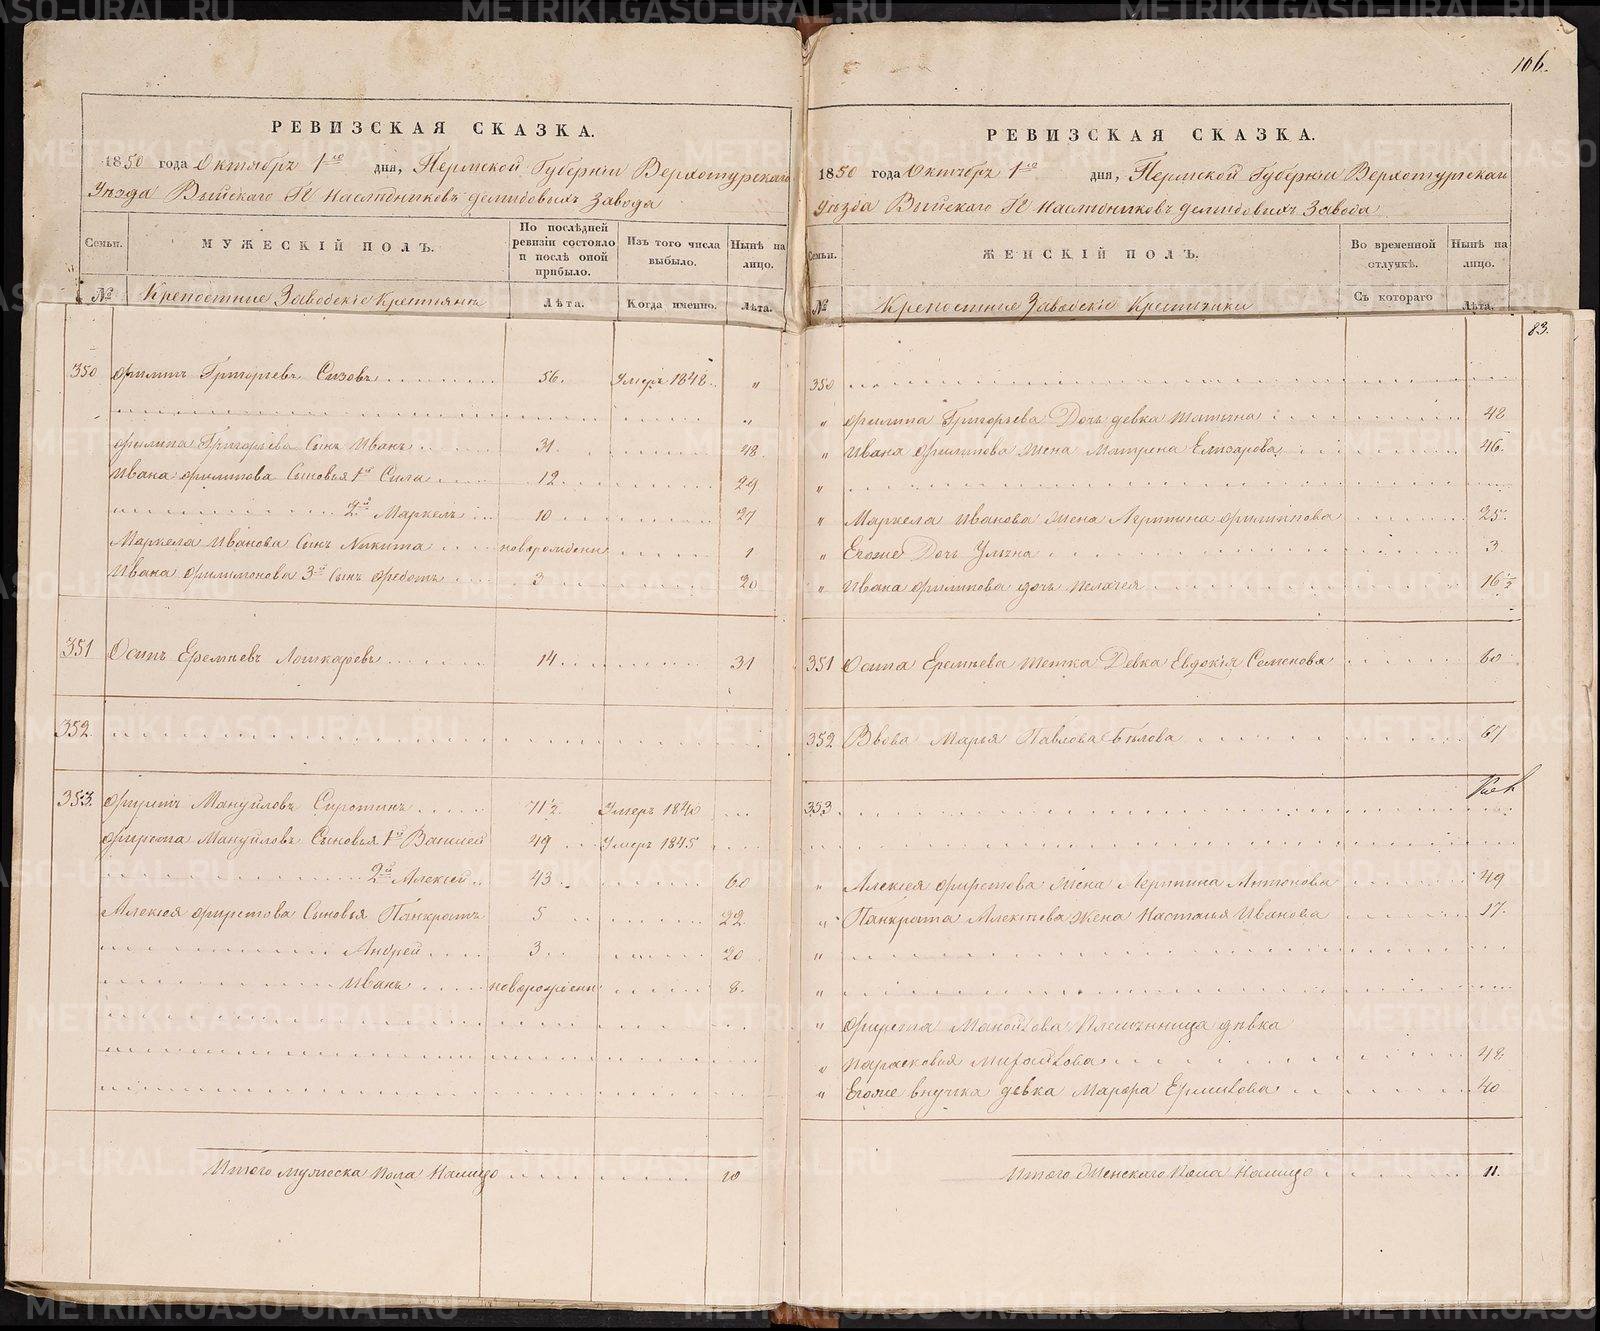 РЕВИЗСКАЯ СКАЗКА.
1850 года Октября 1го дня, Пермской Губернiи Верхотурскаго
Уѣзда Выйскаго Гг Наслѣдниковъ Демидовыхъ Завода
Семьи. МУЖЕСКІЙ ПОЛЪ. По послѣдней ревизіи состояло и послѣ оной прибыло. Изъ того числа выбыло. Нынѣ на лицо.
№ Крепостные Заводскіе Крестьяне Лѣта. Когда именно. Лѣта.
350 Филипъ Григорьевъ Сизовъ 56. Умеръ 1848. "
"
Филипа Григорьева Сынъ Иванъ 31 48.
Ивана Филипова Сыновья 1й Сила 12 29
2й Маркелъ 10 27
Маркела Иванова Сынъ Никита новорожденъ 1
Ивана Филимонова 3й Сынъ Федотъ 3 20
351 Осипъ Еремѣевъ Лошкаревъ 14 31
352.
353. Фирстъ Мануйловъ Сиротинъ 71½. Умеръ 1840
Фирста Мануйловъ Сыновья 1й Василей 49 Умеръ 1845
2й Алексей 43 60
Алексея Фирстова Сыновья Панкратъ 5 22
Андрей 3 20
Иванъ новорожденъ 8.
Итого мужеска пола Налицо 10
106.
РЕВИЗСКАЯ СКАЗКА.
1850 года Октября 1го дня, Пермской Губерніи Верхотурскаго
Уѣзда Выйскаго Гг Наслѣдниковъ Демидовыхъ Завода
Семьи. ЖЕНСКІЙ ПОЛЪ. Во временной отлучкѣ. Нынѣ на лицо.
№ Крепостные Заводскіе Крестьянки Съ котораго Лѣта.
83.
350
" Филипа Григорьева Дочь девка Татьяна 48
" Ивана Филипова жена Матрена Елизарова 46.
"
" Маркела Иванова жена Агрипина Филиппова 25.
" Егоже Дочь Ульяна 3
" Ивана Филипова дочь Пелагея 16½
351 Осипа Еремѣева тетка Девка Евдокія Семенова 60
352 Вдова Марья Павлова Бѣлова 67
353
" Алексея Фирстова жена Агрипина Антонова 49
" Панкрата Алексѣева жена Настасья Иванова 17.
"
"
" Фирста Манойлова Племянница дѣвка
" Парасковья Михайлова 48
" Егоже внучка девка Марфа Ермилова 40
Итого Женскаго Пола Налицо 11.
METRIKI.GASO-URAL.RU